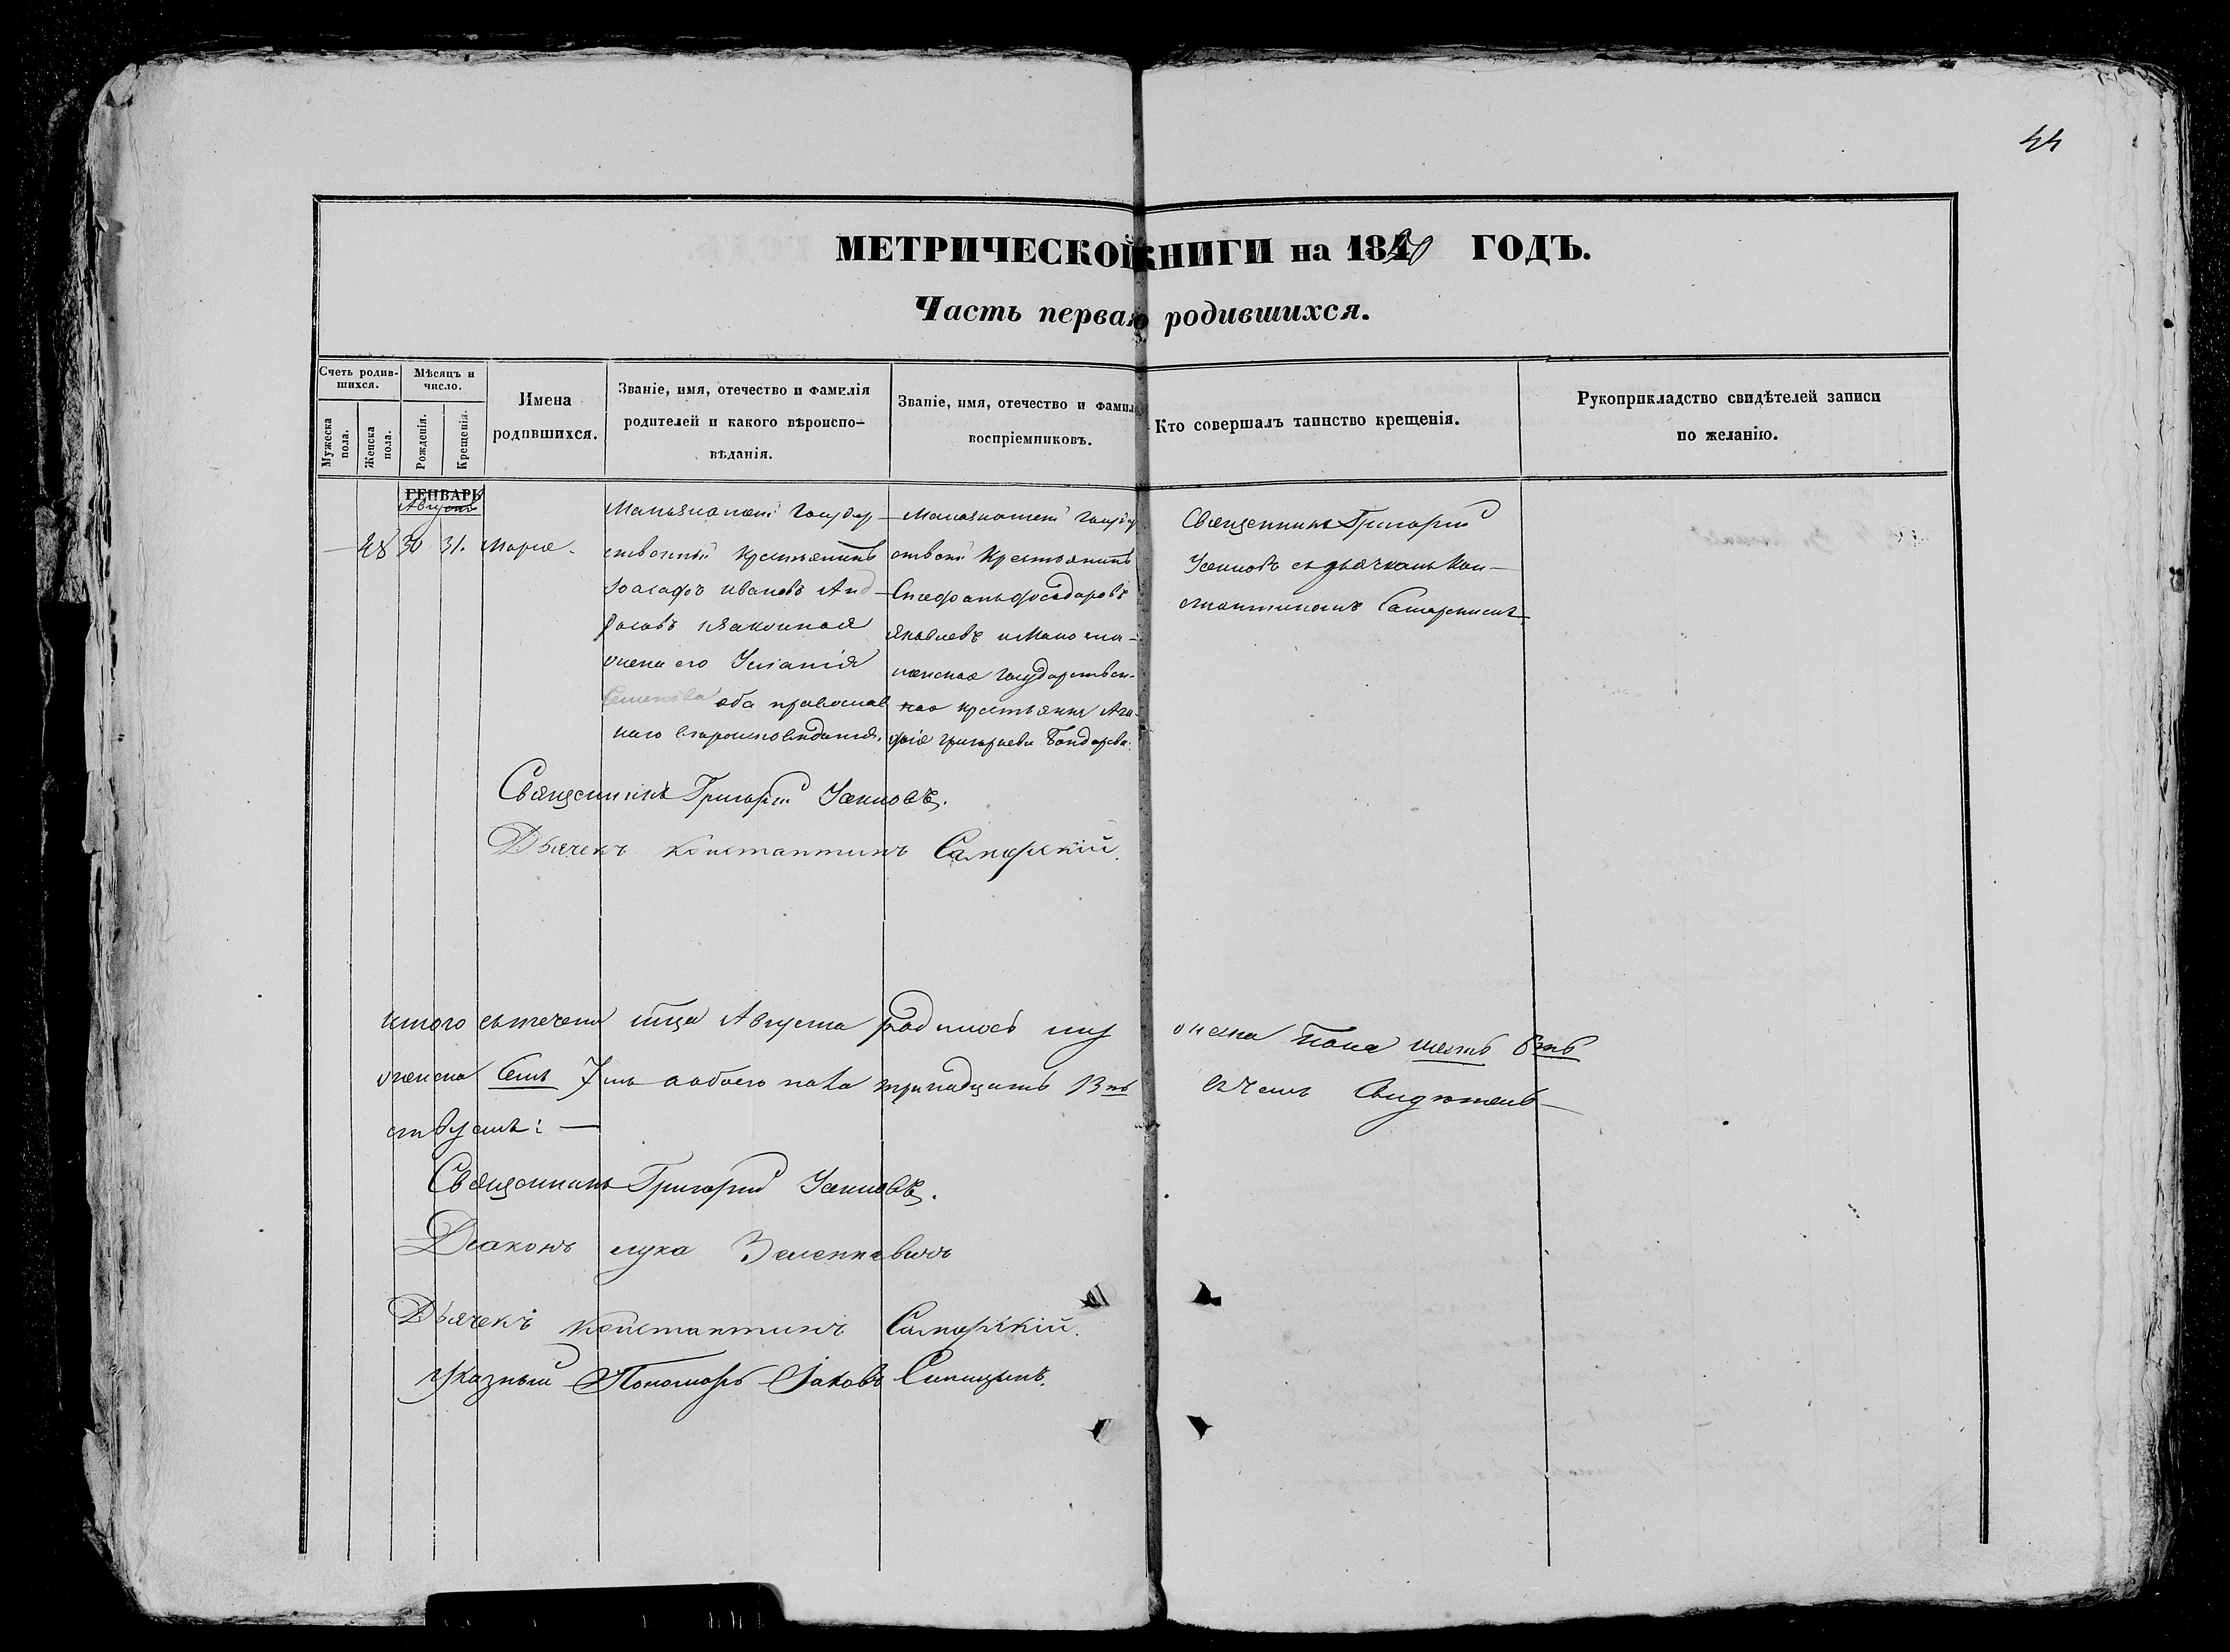 44
МЕТРИЧЕСКОЙ КНИГИ на 18 ГОДЪ.
Часть первая родившихся.
Счетъ родившихся.
Мужеска пола.
Женска пола.
Мѣсяцъ и число.
Рожденія.
Крещенія.
Имена родившихся.
Званіе, имя, отечество и фамилія
родителей и какого вѣроиспо-
вѣданія.
Званіе, имя, отечество и фамил
воспріемниковъ.
Кто совершалъ таинство крещенія.
Рукоприкладство свидѣтелей записи
по желанію.
ГЕНВАРЬ
Августъ
28 30 31. Марія.
Государ
ственный крестьянинъ
Іоасафъ Ивановъ
и законная
жена его Уліанія
Семенова оба православ
наго вѣроисповѣданія.
Государ
крестьянинъ
Стефанъ
Яковлевъ и
Государствен-
ная крестьянка Ага-
фія Григорьева Бондарева.
Священникъ Григорій
съ дьячкомъ Кон-
стантиномъ Самарскимъ
Священникъ Григорій
Дьячекъ Константинъ Самарскій.
итого въ теченіи мца Августа родилось му
жеска пола шесть 6ть
женска семь 7мь а обоего пола тринадцать 13ть
въ чемъ Свидѣтель-
ствуемъ: —
Священникъ Григорій
Діаконъ Лука Зеленкевичъ
Дьячекъ Константинъ Самарскій.
Указный Пономарь Іаковъ Синицынъ.